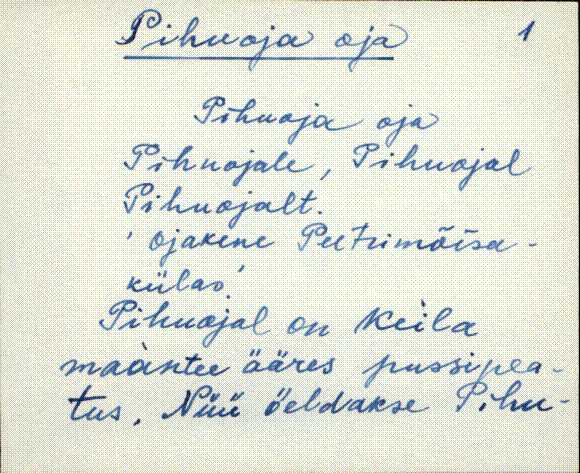 Pihuoja oja 1
Pihuoja oja
Pihuojale, Pihuojal
Pihuojalt.
' ojakene Peetrimõisa-
külas.'
Pihuojal on Keila
maantee ääres pussipea-
tus. Nüü öeldakse Pihu-